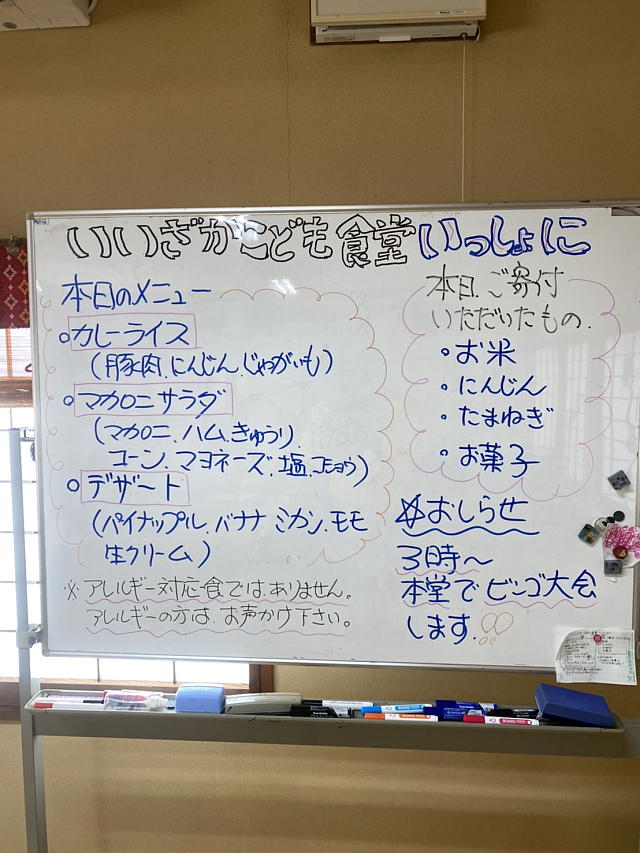 いいざかこども食堂 いっしょに
本日のメニュー
カレーライス
(豚肉、にんじん、じゃがいも)
マカロニサラダ
(マカロニ、ハム、きゅうり、
コーン、マヨネーズ、塩、コショウ)
デザート
(パイナップル、バナナ ミカン、モモ
生クリーム)
※アレルギー対応食ではありません。
アレルギーの方は、お声かけ下さい。
本日、ご寄付
いただいたもの.
・お米
・にんじん
・たまねぎ
・お菓子
☆おしらせ
3時〜
本堂でビンゴ大会
します!!